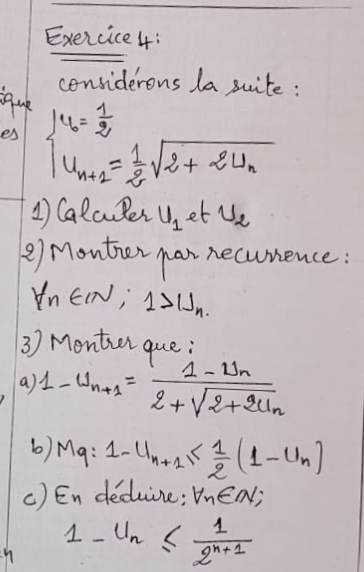 ique
es
Exercice 4:
considérons la suite :
{ U₀ = 1/2
{ Uₙ₊₁ = 1/2 √(2 + 2Uₙ)
1) Calculer U₁ et U₂
2) Montrer par recurrence :
∀n ∈ IN ; 1 > Uₙ.
3) Montrer que :
a) 1 - Uₙ₊₁ = (1 - Uₙ) / (2 + √(2 + 2Uₙ))
b) Mq : 1 - Uₙ₊₁ ≤ 1/2 (1 - Uₙ)
c) En déduire ; ∀n ∈ IN ;
1 - Uₙ ≤ 1/2ⁿ⁺¹